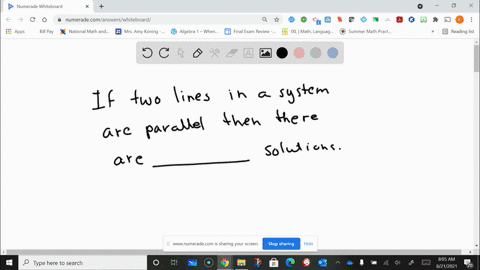 Numerade Whiteboard
numerade.com/answers/whiteboard/
Apps
Bill Pay
National Math and...
Mrs. Amy Konnig -...
Algebra 1 – When...
Final Exam Review -...
00, J Math, Languag...
Summer Math Pract...
Reading list
If two lines in a system
are parallel then there
are __________ solutions.
www.numerade.com is sharing your screen.
Stop sharing
Hide
Type here to search
8:05 AM
8/21/2021